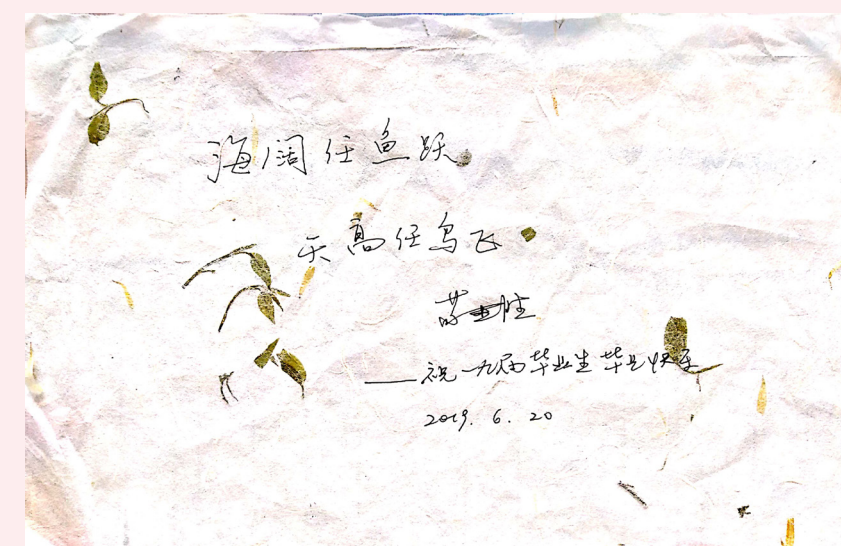 海阔任鱼跃
天高任鸟飞
苏
——祝一九届毕业生毕业快乐
2019.6.20